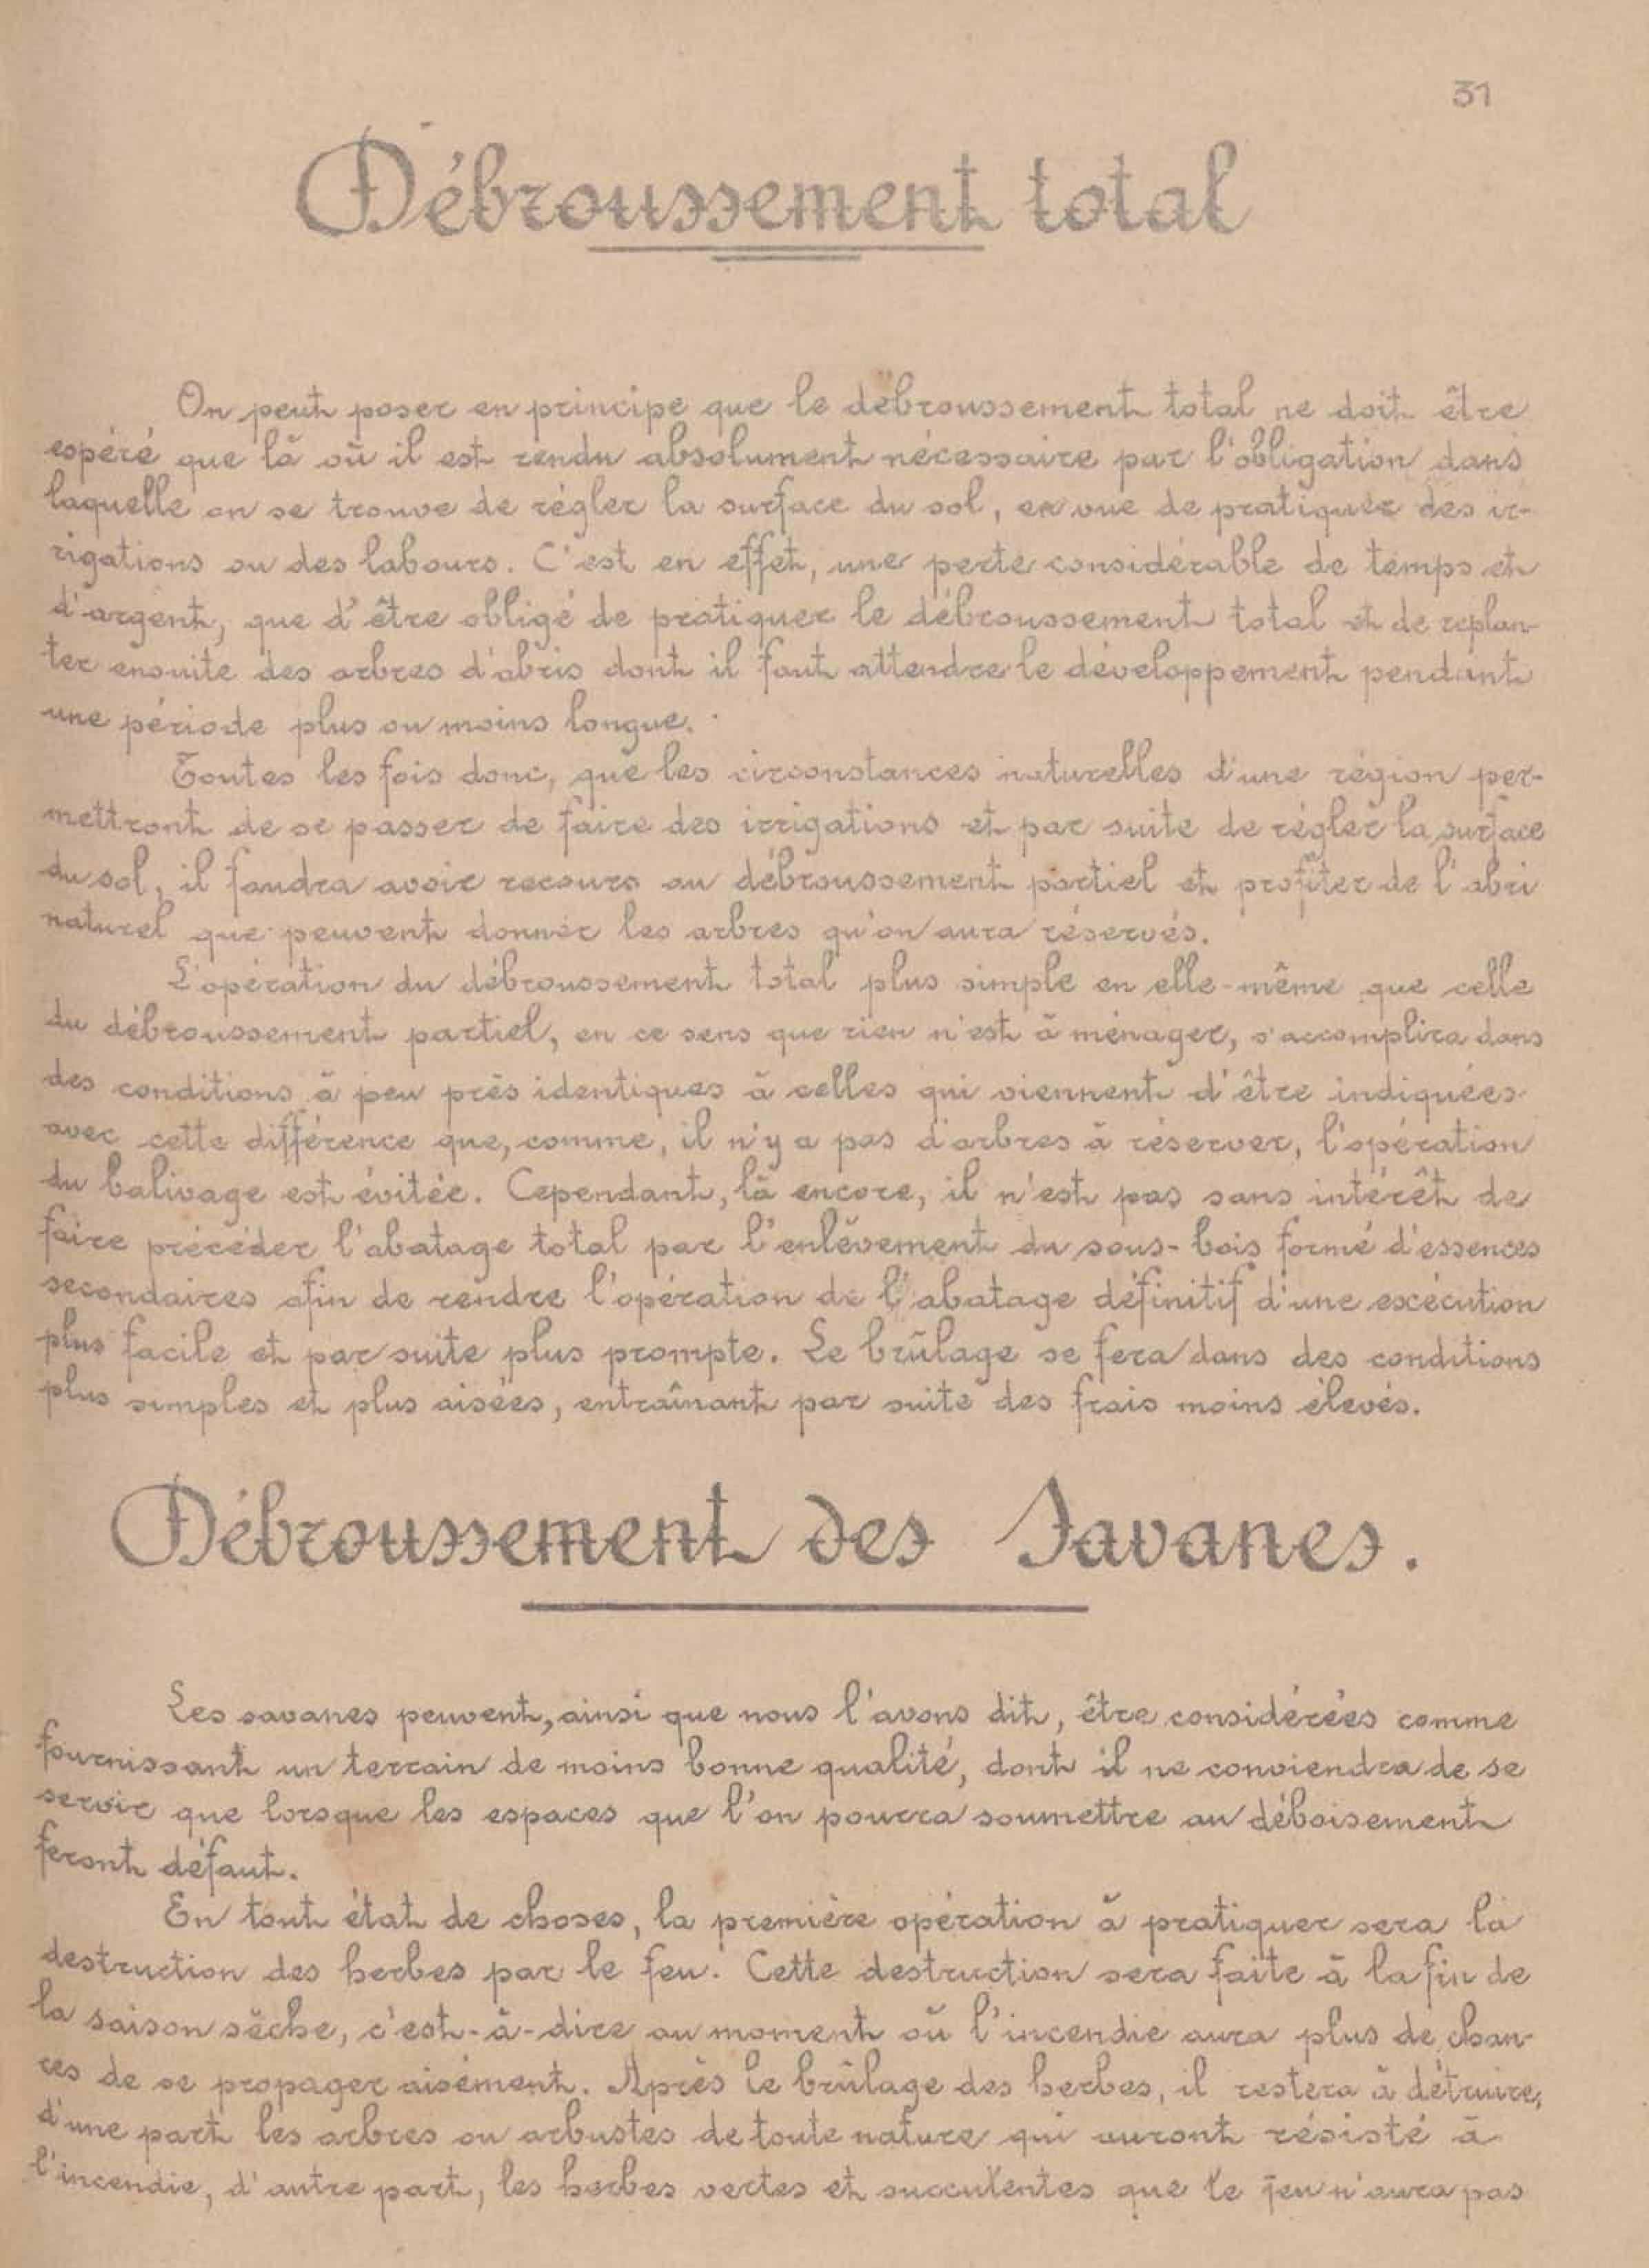 31
Débroussement total
On peut poser en principe que le débroussement total ne doit être
espéré que là où il est rendu absolument nécessaire par l'obligation dans
laquelle on se trouve de régler la surface du sol, en vue de pratiquer des ir-
rigations ou des labours. C'est en effet, une perte considérable de temps et
d'argent, que d'être obligé de pratiquer le débroussement total et de replan-
ter ensuite des arbres d'abris dont il faut attendre le développement pendant
une période plus ou moins longue.
Toutes les fois donc, que les circonstances naturelles d'une région per-
mettront de se passer de faire des irrigations et par suite de régler la surface
du sol, il faudra avoir recours au débroussement partiel et profiter de l'abri
naturel que peuvent donner les arbres qu'on aura réservés.
L'opération du débroussement total plus simple en elle-même que celle
du débroussement partiel, en ce sens que rien n'est à ménager, s'accomplira dans
des conditions à peu près identiques à celles qui viennent d'être indiquées
avec cette différence que, comme, il n'y a pas d'arbres à réserver, l'opération
du balivage est évitée. Cependant, là encore, il n'est pas sans intérêt de
faire précéder l'abatage total par l'enlèvement du sous-bois formé d'essences
secondaires afin de rendre l'opération de l'abatage définitif d'une excécution
plus facile et par suite plus prompte. Le brûlage se fera dans des conditions
plus simples et plus aisées, entraînant par suite des frais moins élevés.
Débroussement des Savanes.
Les savanes peuvent, ainsi que nous l'avons dit, être considérées comme
fournissant un terrain de moins bonne qualité, dont il ne conviendra de se
servir que lorsque les espaces que l'on pourra soumettre au déboisement
feront défaut.
En tout état de choses, la première opération à pratiquer sera la
destruction des herbes par le feu. Cette destruction sera faite à la fin de
la saison sèche, c'est-à-dire au moment où l'incendie aura plus de chan-
ces de se propager aisément. Après le brûlage des herbes, il restera à détruire,
d'une part les arbres ou arbustes de toute nature qui auront résisté à
l'incendie, d'autre part, les herbes vertes et succulentes que le feu n'aura pas